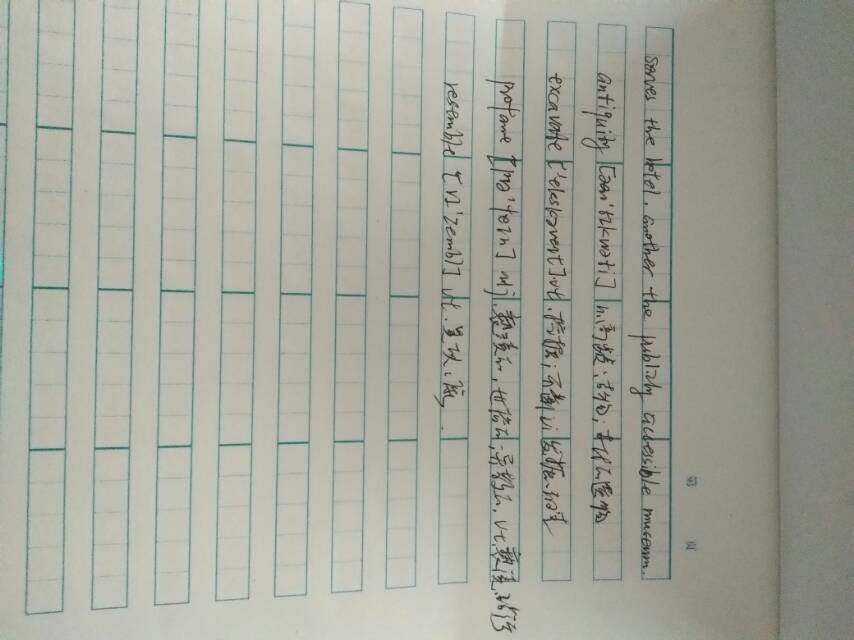 serves the hotel, another the publicly accessible museum.
antiquity [æn'tɪkwəti] n.高龄;古物;古代的遗物
excavate ['ekskəveɪt].vt.挖掘;开凿 vi 发掘
profane [prə'feɪn] adj.亵渎的,世俗的, vt.亵渎
resemble [rɪ'zembl] vt.类似,像.